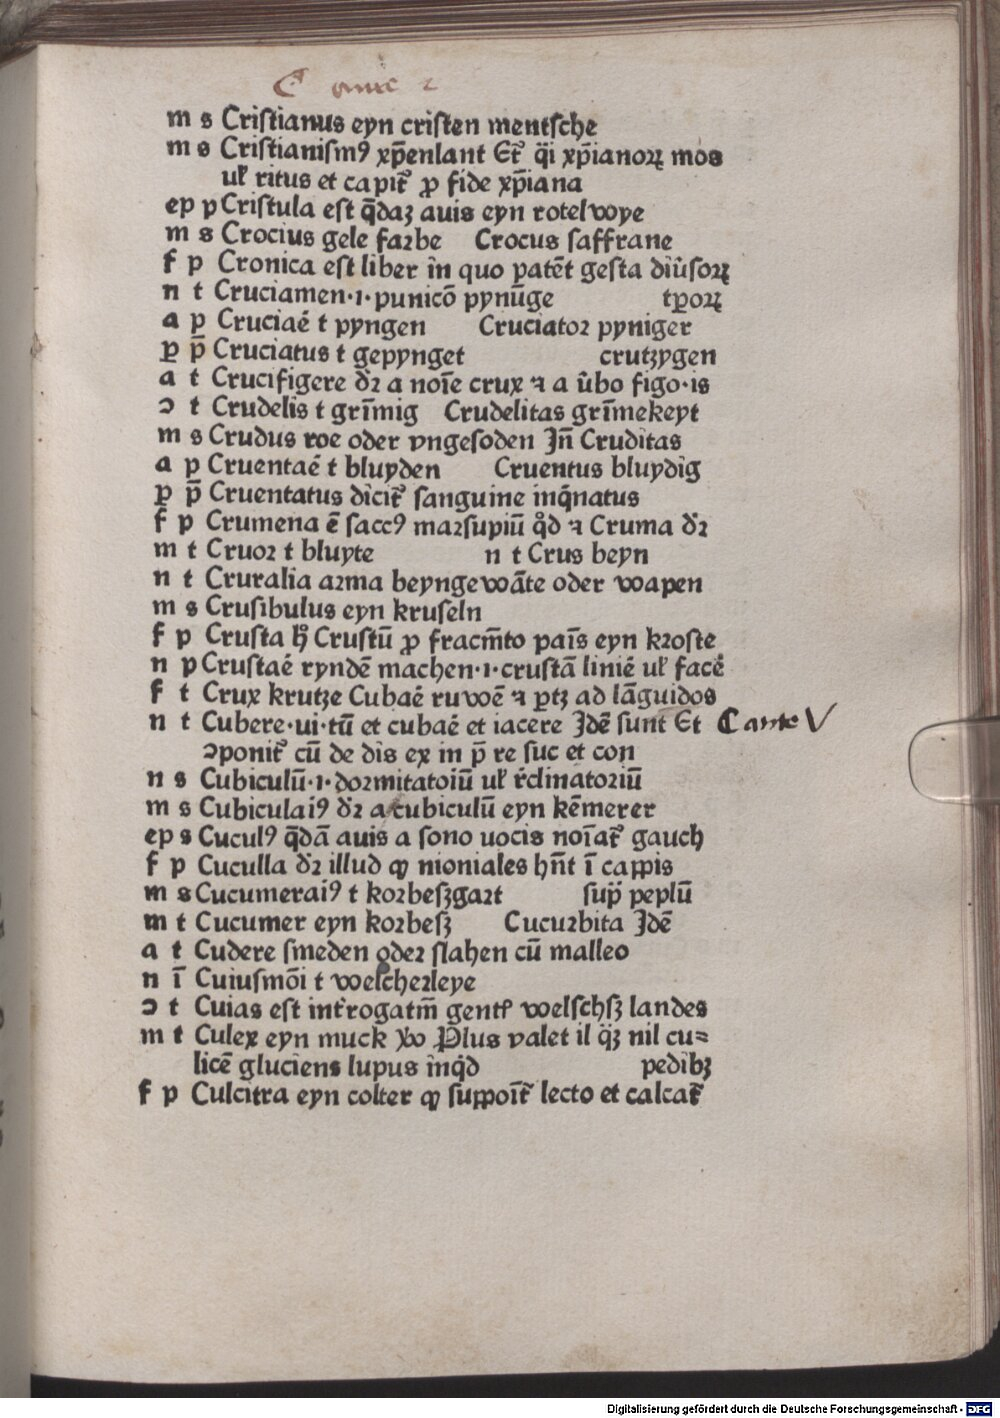 C ante r
m s Criſtianus eyn criſten mentſche
m s Criſtianiſmꝰ xp̄enlant Et̉ q̈i xp̄ianoꝝ mos
ul̉ ritus et capit̉ ꝓ fide xp̄iana
ep p Criſtula eſt q̄daꝫ auis eyn rotelvoye
m s Crocius gele faꝛbe Crocus ſaffrane
f p Cronica eſt liber in quo patēt geſta diu̓ſoꝝ
n t Cruciamen·i·punicō pynūge tꝑoꝝ
a p Cruciaé t pyngen Cruciatoꝛ pyniger
ꝑ p̄ Cruciatus t gepynget crutzygen
a t Crucifigere dꝛ̉ a noīe crux ⁊ a u̓bo figo·is
ɔ t Crudelis t grīmig Crudelitas grīmekeyt
m s Crudus roe oder vngeſoden Jn̄ Cruditas
a p Cruentaé t bluyden Cruentus bluydig
ꝑ p̄ Cruentatus dicit̉ ſanguine inq̇natus
f p Crumena ē ſaccꝰ maꝛſupiū qͦd ⁊ Cruma dꝛ̉
m t Cruoꝛ t bluyte n t Crus beyn
n t Cruralia aꝛma beyngewāte oder wapen
m s Cruſibulus eyn kruſeln
f p Cruſta hͦ Cruſtū ꝓ fracm̄to paīs eyn kꝛoſte
n p Cruſtaé ryndē machen·i·cruſtā linié ul̉ facé
f t Crux krutze Cubaé ruwē ⁊ ꝑtꝫ ad lāguidos
n t Cubere·ui·tū et cubaé et iacere Jdē ſunt Et C ante V
ɔponit̉ cū de dis ex in p̄ re ſuc et con
n s Cubiculū·i·doꝛmitatoiū ul̉ r̓clinatoꝛiū
m s Cubiculaiꝰ dꝛ̉ a cubiculū eyn kēmerer
ep s Cuculꝰ q̄dā auis a ſono uocis noīat̉ gauch
f p Cuculla dꝛ̉ illud ꝙ nioniales hn̄t ī cappis
m s Cucumeraiꝰ t koꝛbeſꝫgaꝛt ſup̈ peplū
m t Cucumer eyn koꝛbeſꝫ Cucuꝛbita Jdē
a t Cudere ſmeden odeꝛ ſlahen cū malleo
n ī Cuiuſmōi t welcheꝛleye
ɔ t Cuias eſt int̓rogatm̄ gentꝭ welſchſꝫ landes
m t Culex eyn muck Plus valet il q̈ꝫ nil cu⸗
licē gluciens lupus inq̇d pedibꝫ
f p Culcitra eyn colter ꝙ ſuppoīt̉ lecto et calcat̉
Digitalisierung gefördert durch die Deutsche Forschungsgemeinschaft - DFG